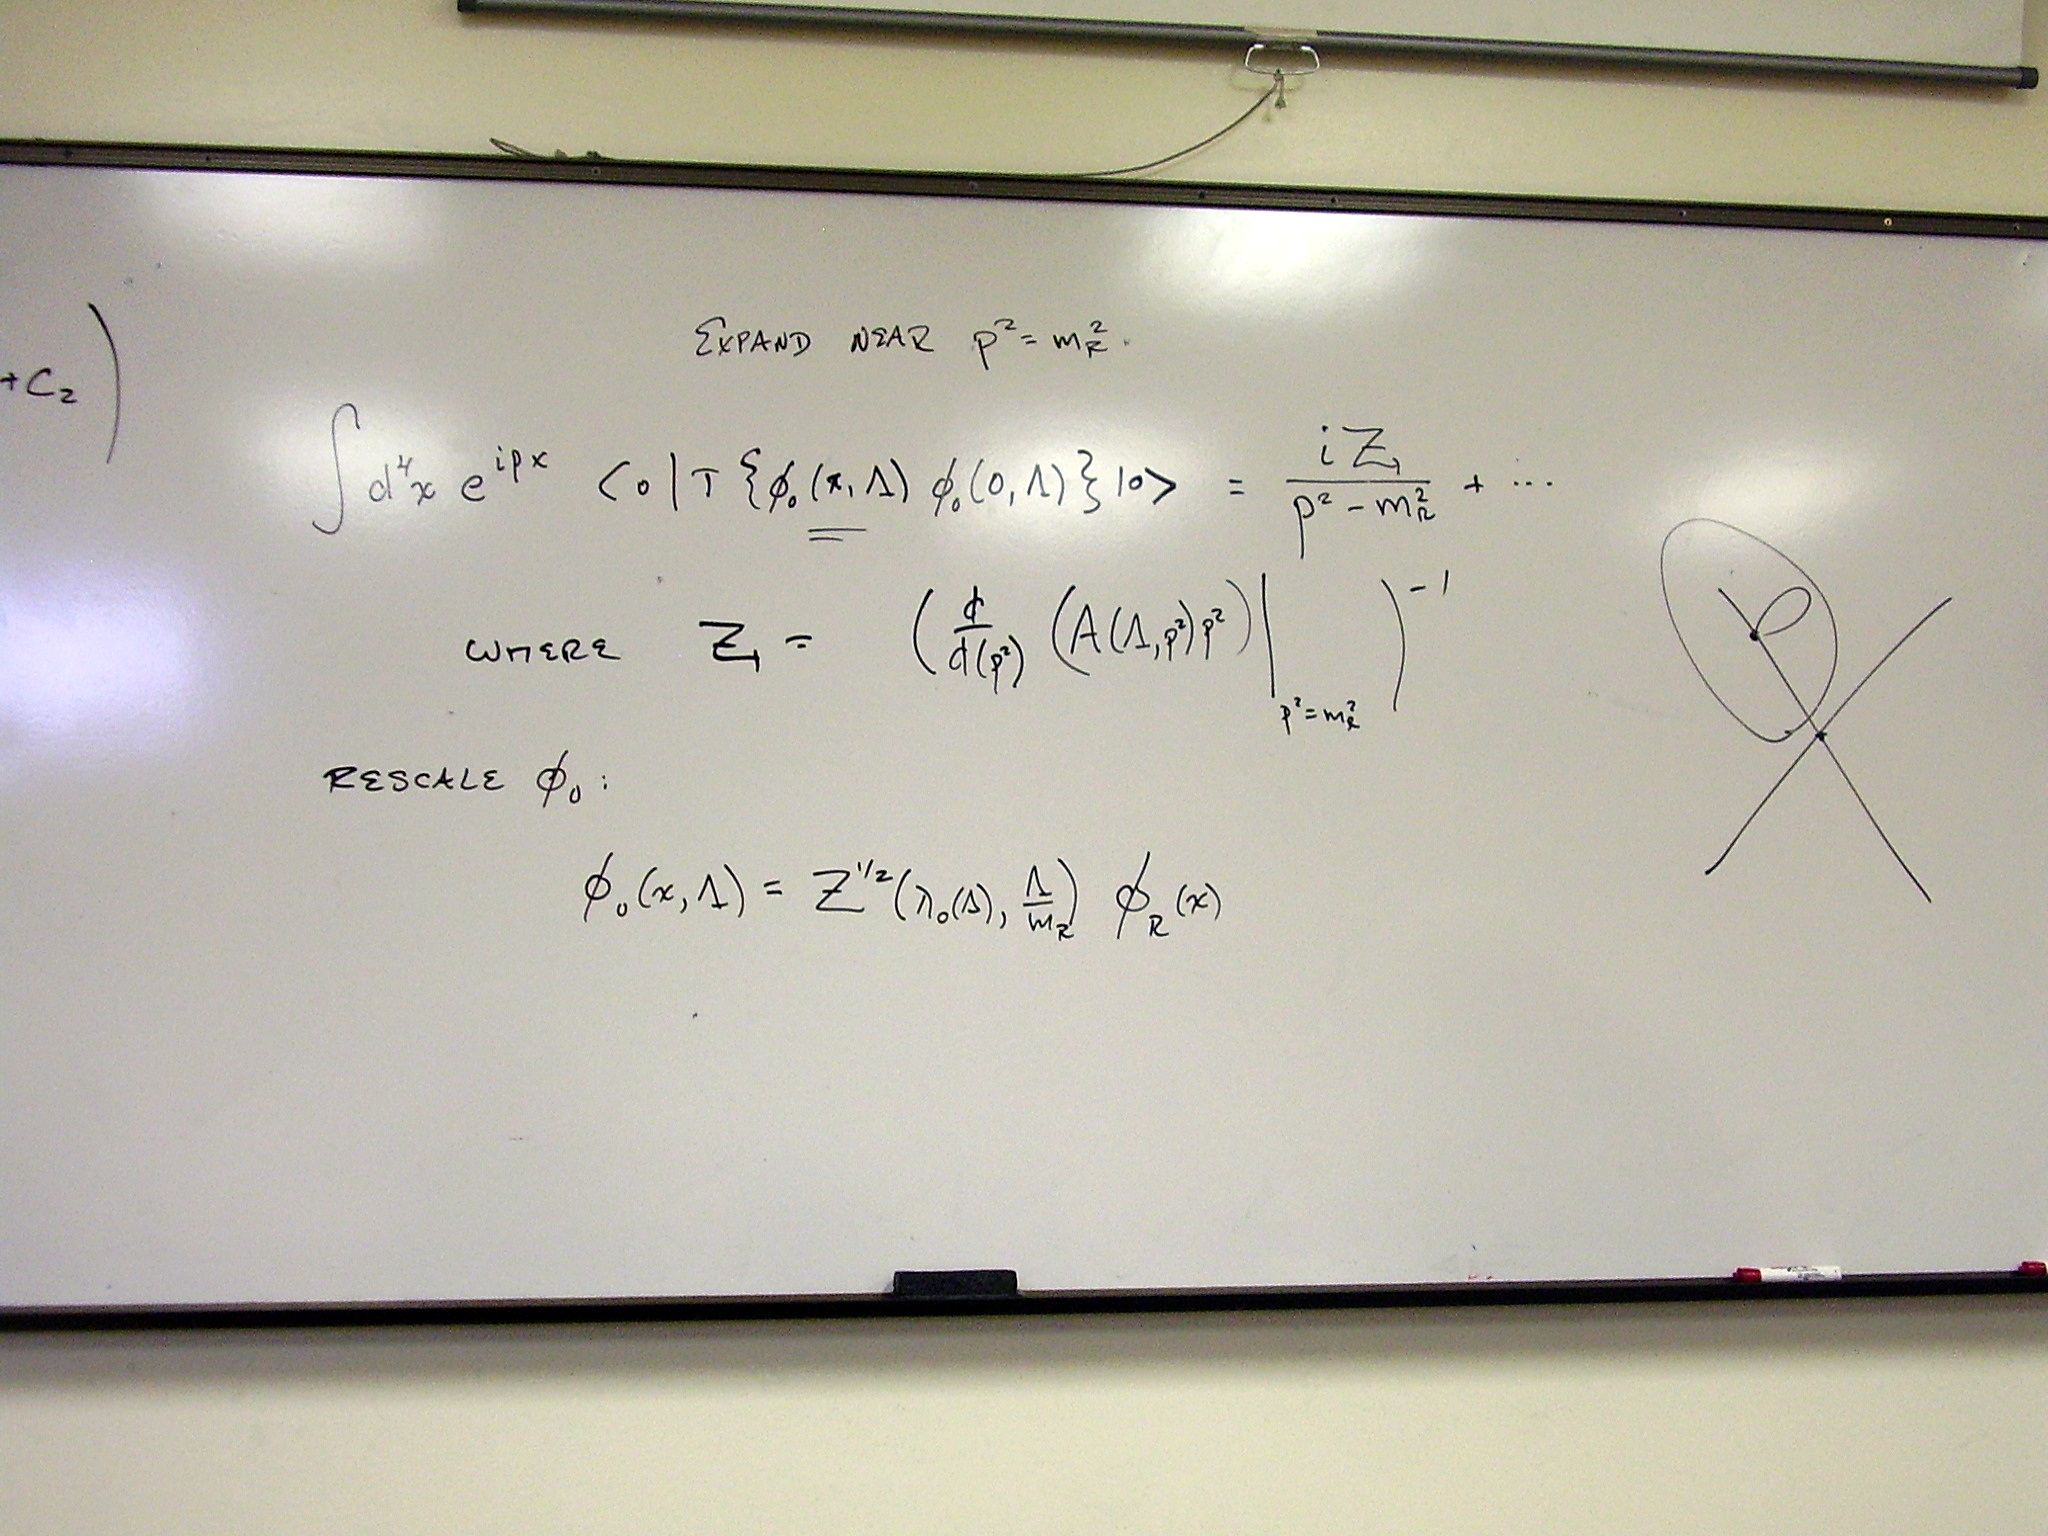 EXPAND NEAR p² = m_R².
+C₂)
∫ d⁴x e^{ipx} <0|T{ϕ₀(x,Λ) ϕ₀(0,Λ)}|0> = iZ₁/(p² - m_R²) + ...
WHERE Z₁ = (d/d(p²) (A(Λ,p²)p²)|_{p²=m_R²})⁻¹
RESCALE ϕ₀:
ϕ₀(x,Λ) = Z^{1/2}(λ₀(Λ), Λ/m_R) ϕ_R(x)